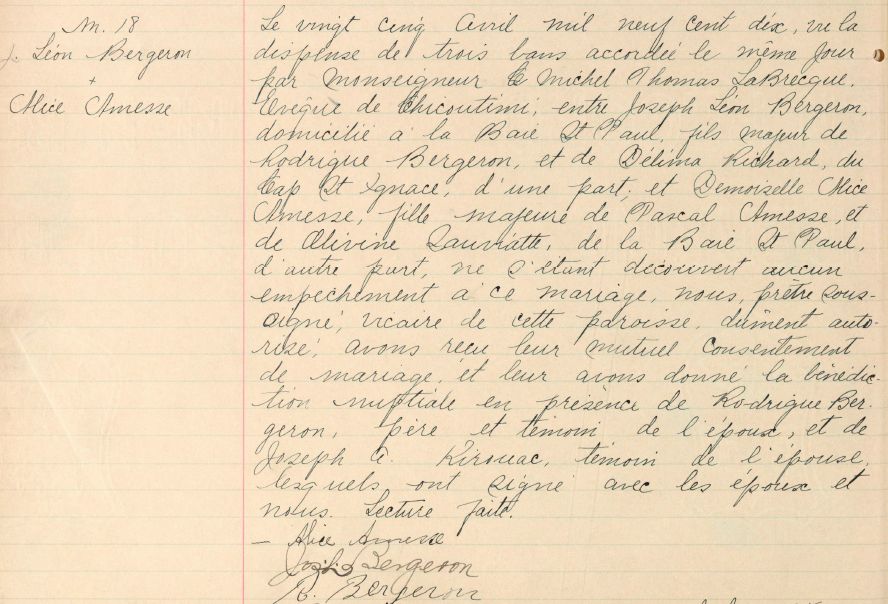 M. 18
J. Léon Bergeron
+
Alice Amesse
Le vingt cinq Avril mil neuf cent dix, vu la
dispense de trois bans accordée le même jour
par Monseigneur Michel Thomas LaBrecque,
Evêque de Chicoutimi, entre Joseph Léon Bergeron,
domicilié à la Baie St Paul, fils majeur de
Rodrigue Bergeron, et de Délima Richard, du
Cap St Ignace, d'une part; et Demoiselle Alice
Amesse, fille majeure de Pascal Amesse, et
de Olivine Lauriatte, de la Baie St Paul,
d'autre part, ne s'étant découvert aucun
empêchement à ce mariage, nous, prêtre sous-
signé, vicaire de cette paroisse, dûment auto-
risé, avons reçu leur mutuel consentement
de mariage, et leur avons donné la bénédic-
tion nuptiale en présence de Rodrigue Ber-
geron, père et témoin de l'époux, et de
Joseph A. Kirouac, témoin de l'épouse,
lesquels ont signé avec les époux et
nous. Lecture faite.
— Alice Amesse
Jos. L. Bergeron
R. Bergeron